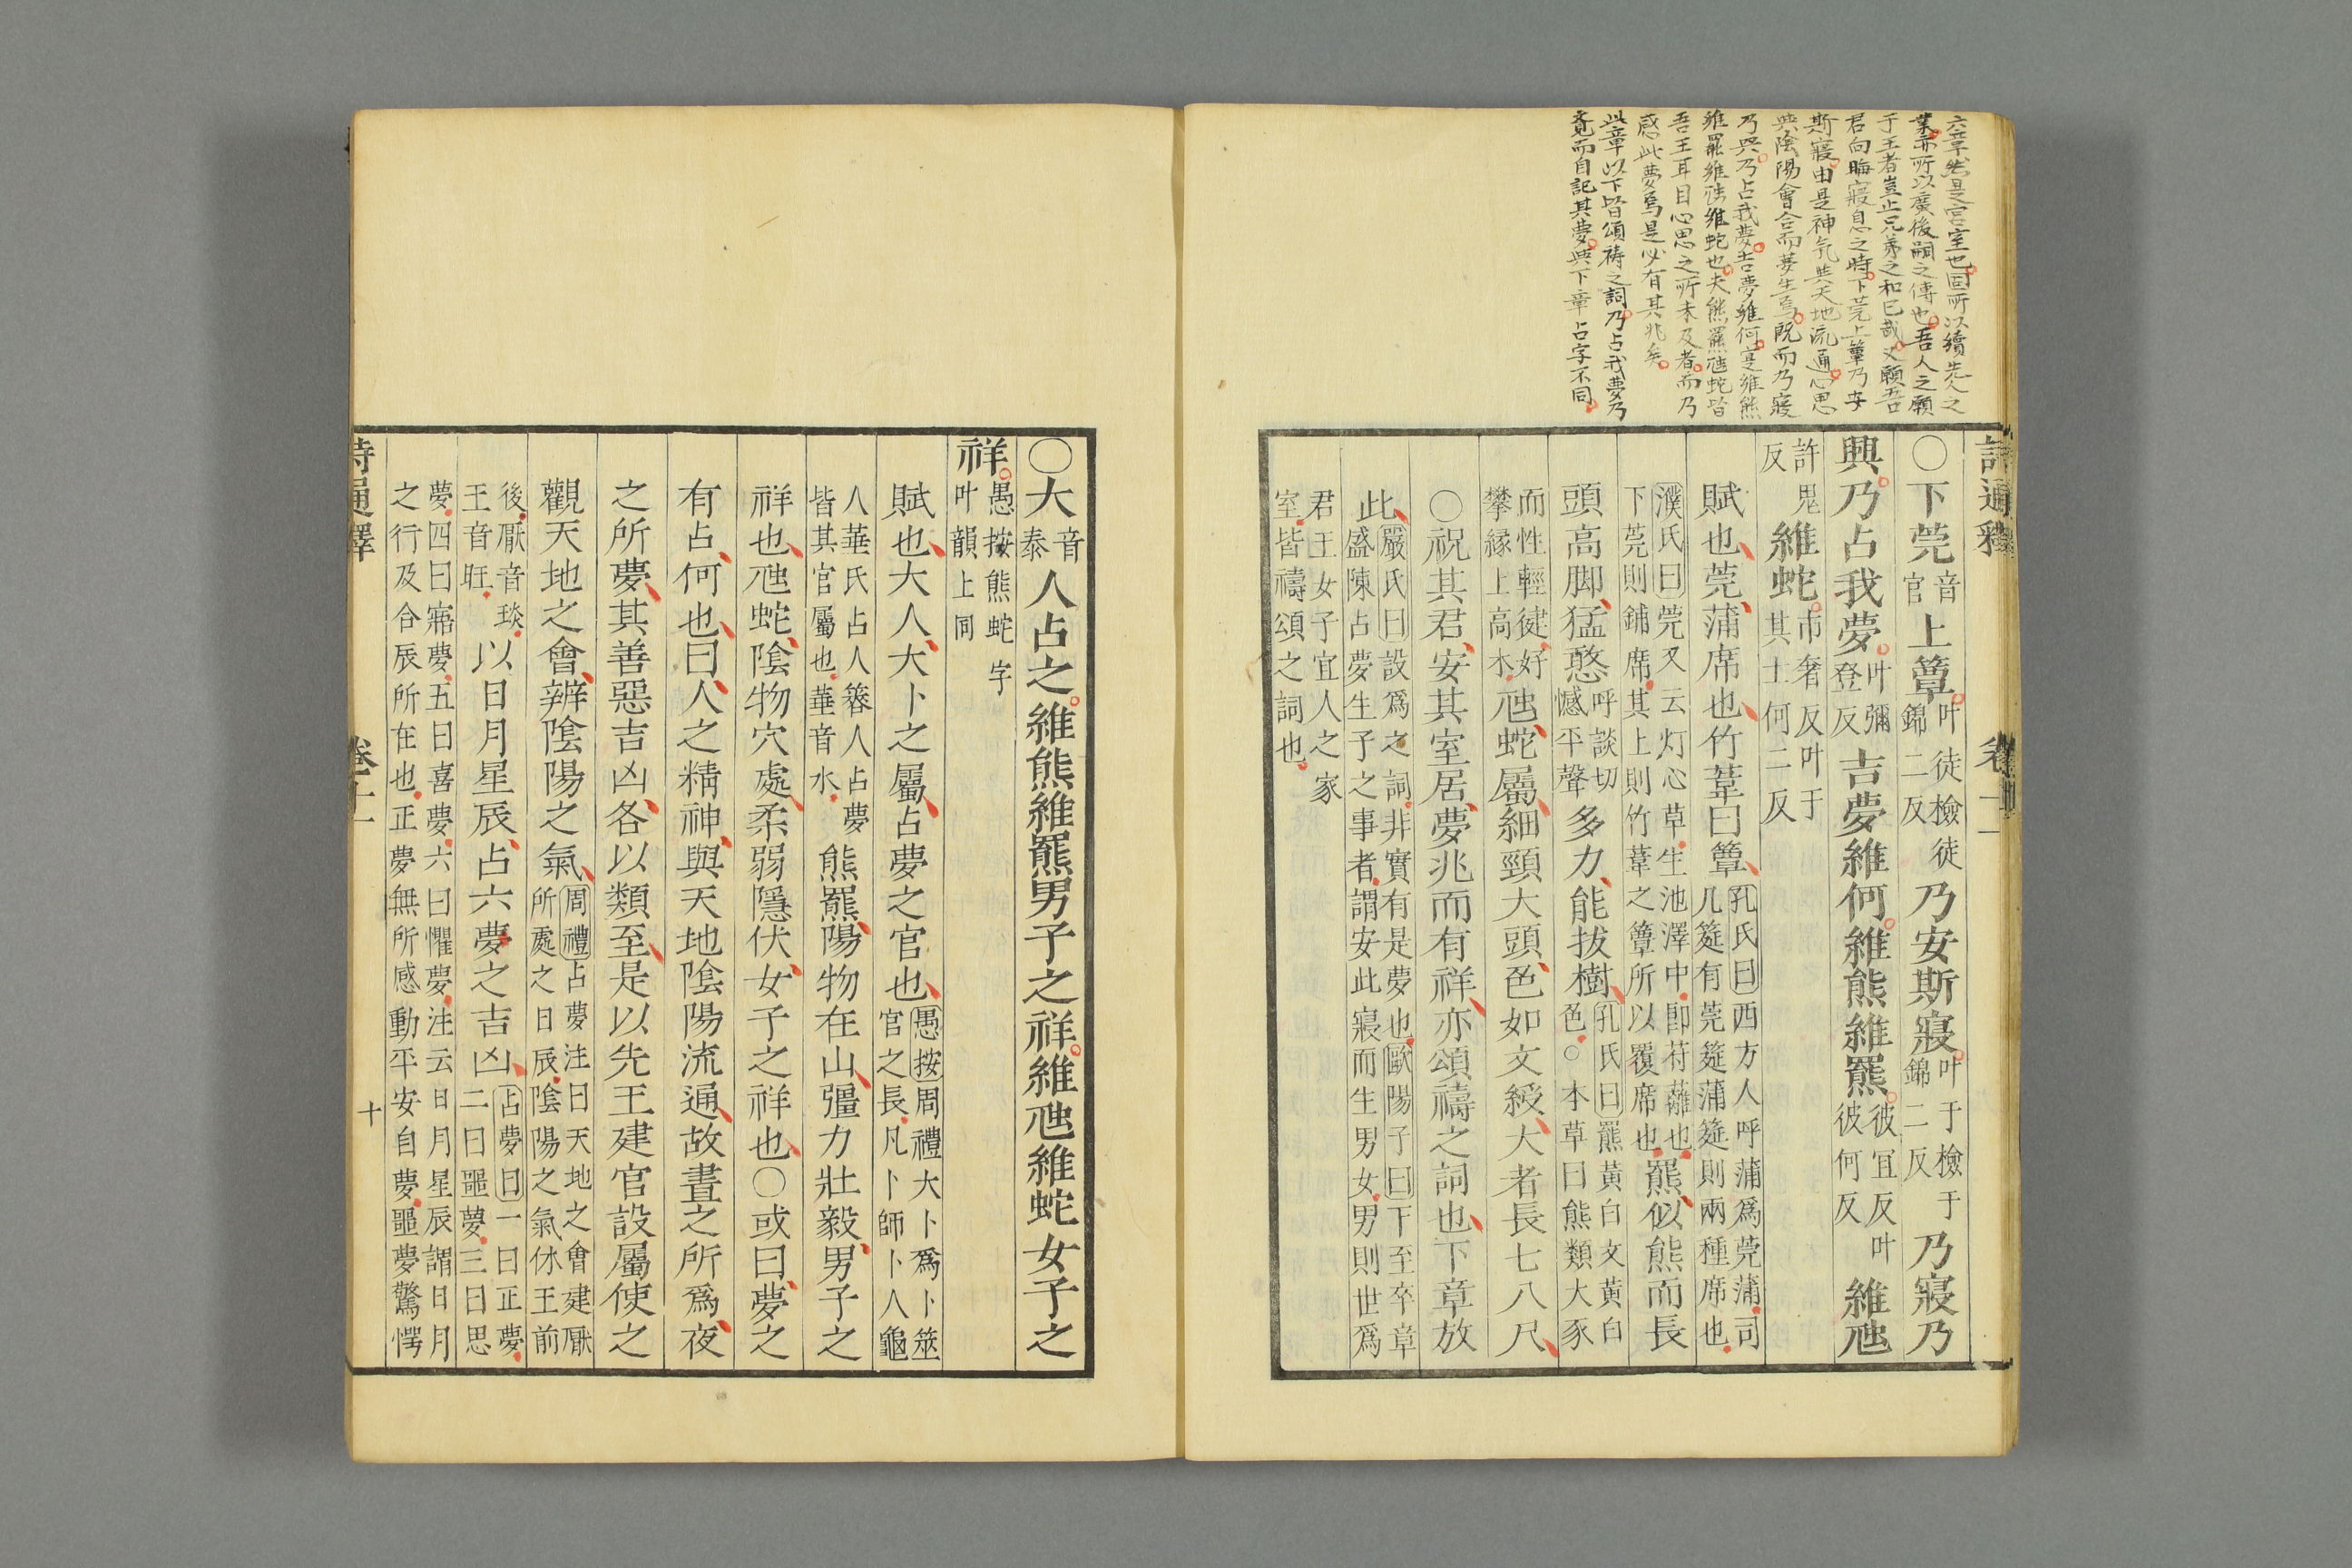 六章然是宮室也固所以續先人之
業亦所以廣後嗣之傳也吾人之願
于王者豈止兄弟之和已哉又願吾
君向晦寢息之時下莞上簟乃安
斯寢由是神氣與天地流通心思
與陰陽會合而夢生焉既而乃寢
乃興乃占我夢吉夢維何寔維熊
維羆維虺維蛇也夫熊羆虺蛇皆
吾王耳目心思之所未及者而乃
感此夢焉是必有其兆矣
此章以下皆頌禱之詞乃占我夢乃
覔而自記其夢與下章占字不同
詩通釋 卷十一
○下莞音官上簟叶徒檢徒錦二反乃安斯寢叶于檢于錦二反乃寢乃
興乃占我夢叶彌登反吉夢維何維熊維羆彼宜反叶彼何反維虺
許鬼反維蛇市奢反叶于其土何二反
賦也莞蒲席也竹葦曰簟孔氏曰西方人呼蒲爲莞蒲司几筵有莞筵蒲筵則兩種席也
濮氏曰莞又云灯心草生池澤中卽苻蘺也下莞則鋪席其上則竹葦之簟所以覆席也羆似熊而長
頭高脚猛憨呼談切憾平聲多力能拔樹孔氏曰羆黃白文黃白色○本草曰熊類大豕
而性輕徤好攀緣上高木虺蛇屬細頸大頭色如文綬大者長七八尺
○祝其君安其室居夢兆而有祥亦頌禱之詞也下章放
此嚴氏曰設爲之詞非實有是夢也歐陽子曰下至卒章盛陳占夢生子之事者謂安此寢而生男女男則世爲
君王女子宜人之家室皆禱頌之詞也
○大音泰人占之維熊維羆男子之祥維虺維蛇女子之
祥愚按熊蛇字叶韻上同
賦也大人大卜之屬占夢之官也愚按周禮大卜爲卜筮官之長凡卜師卜人龜
人菙氏占人簭人占夢皆其官屬也菙音水熊羆陽物在山彊力壯毅男子之
祥也虺蛇陰物穴處柔弱隱伏女子之祥也○或曰夢之
有占何也曰人之精神與天地陰陽流通故晝之所爲夜
之所夢其善惡吉凶各以類至是以先王建官設屬使之
觀天地之會辨陰陽之氣周禮占夢注曰天地之會建厭所處之日辰陰陽之氣休王前
後厭音琰王音旺以日月星辰占六夢之吉凶占夢曰一曰正夢二曰噩夢三曰思
夢四曰寤夢五曰喜夢六曰懼夢注云日月星辰謂日月之行及合辰所在也正夢無所感動平安自夢噩夢驚愕
詩通釋 卷十一 十